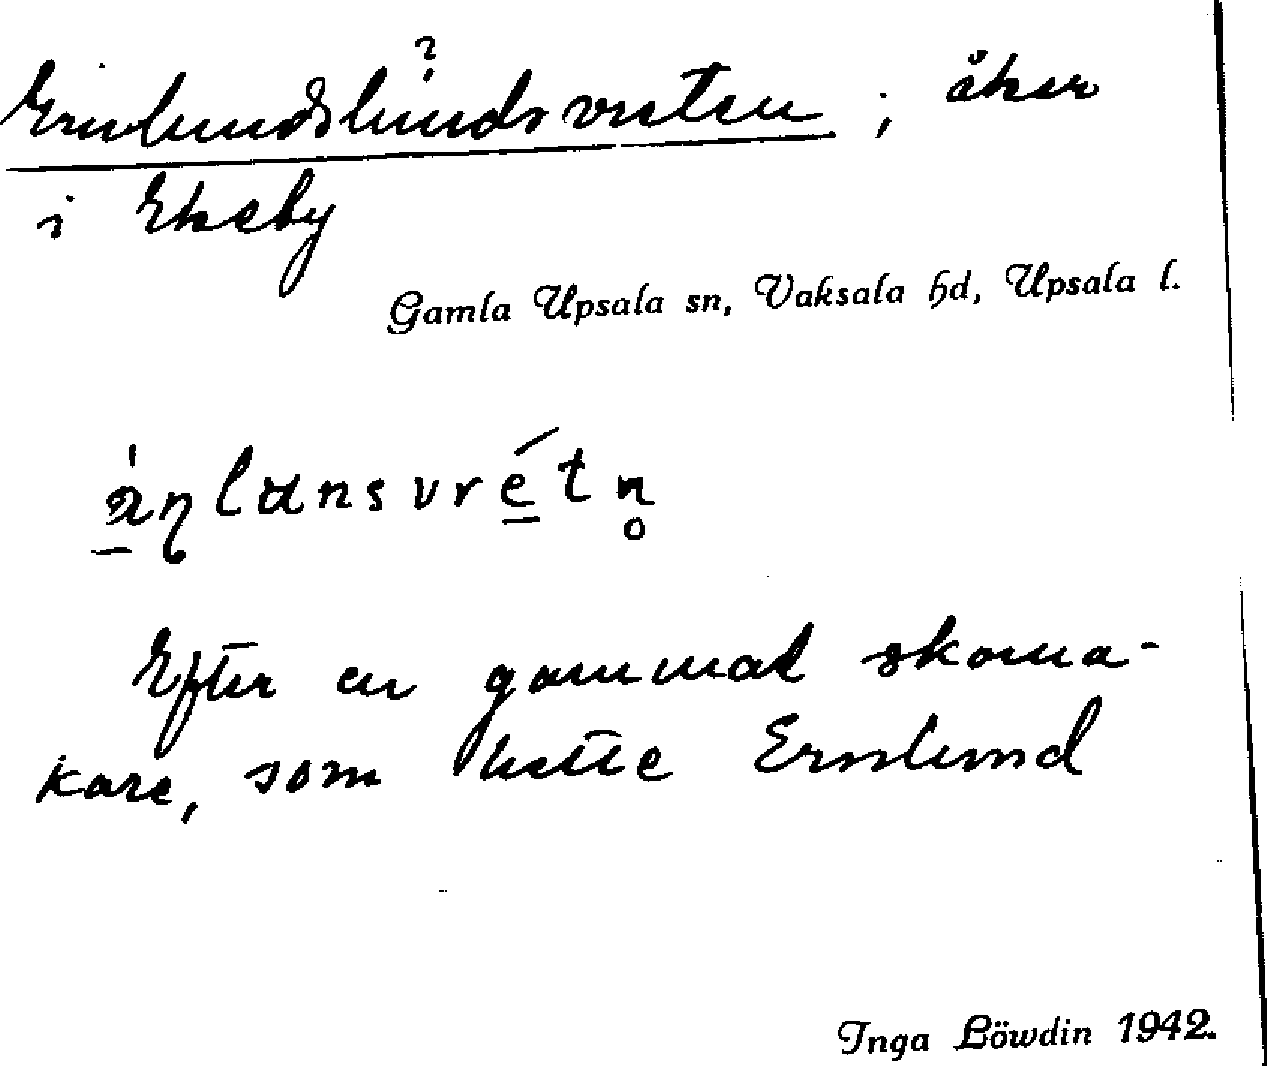 ?
Ernlundslundsvreten ; åker
i Ekeby
Gamla Upsala sn, Vaksala hd, Upsala l.
Efter en gammal skoma-
kare, som hette Ernlund
Inga Löwdin 1942.